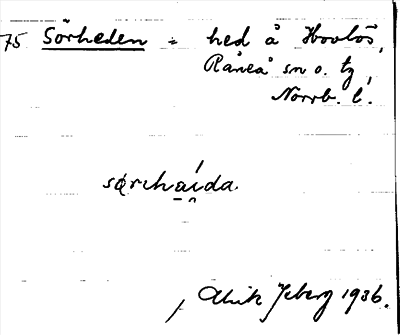 75 Sörheden = hed å Hovlös,
Råneå sn o. tg,
Norrb. l.
sørhaída.
Ulrik Iseberg 1936.